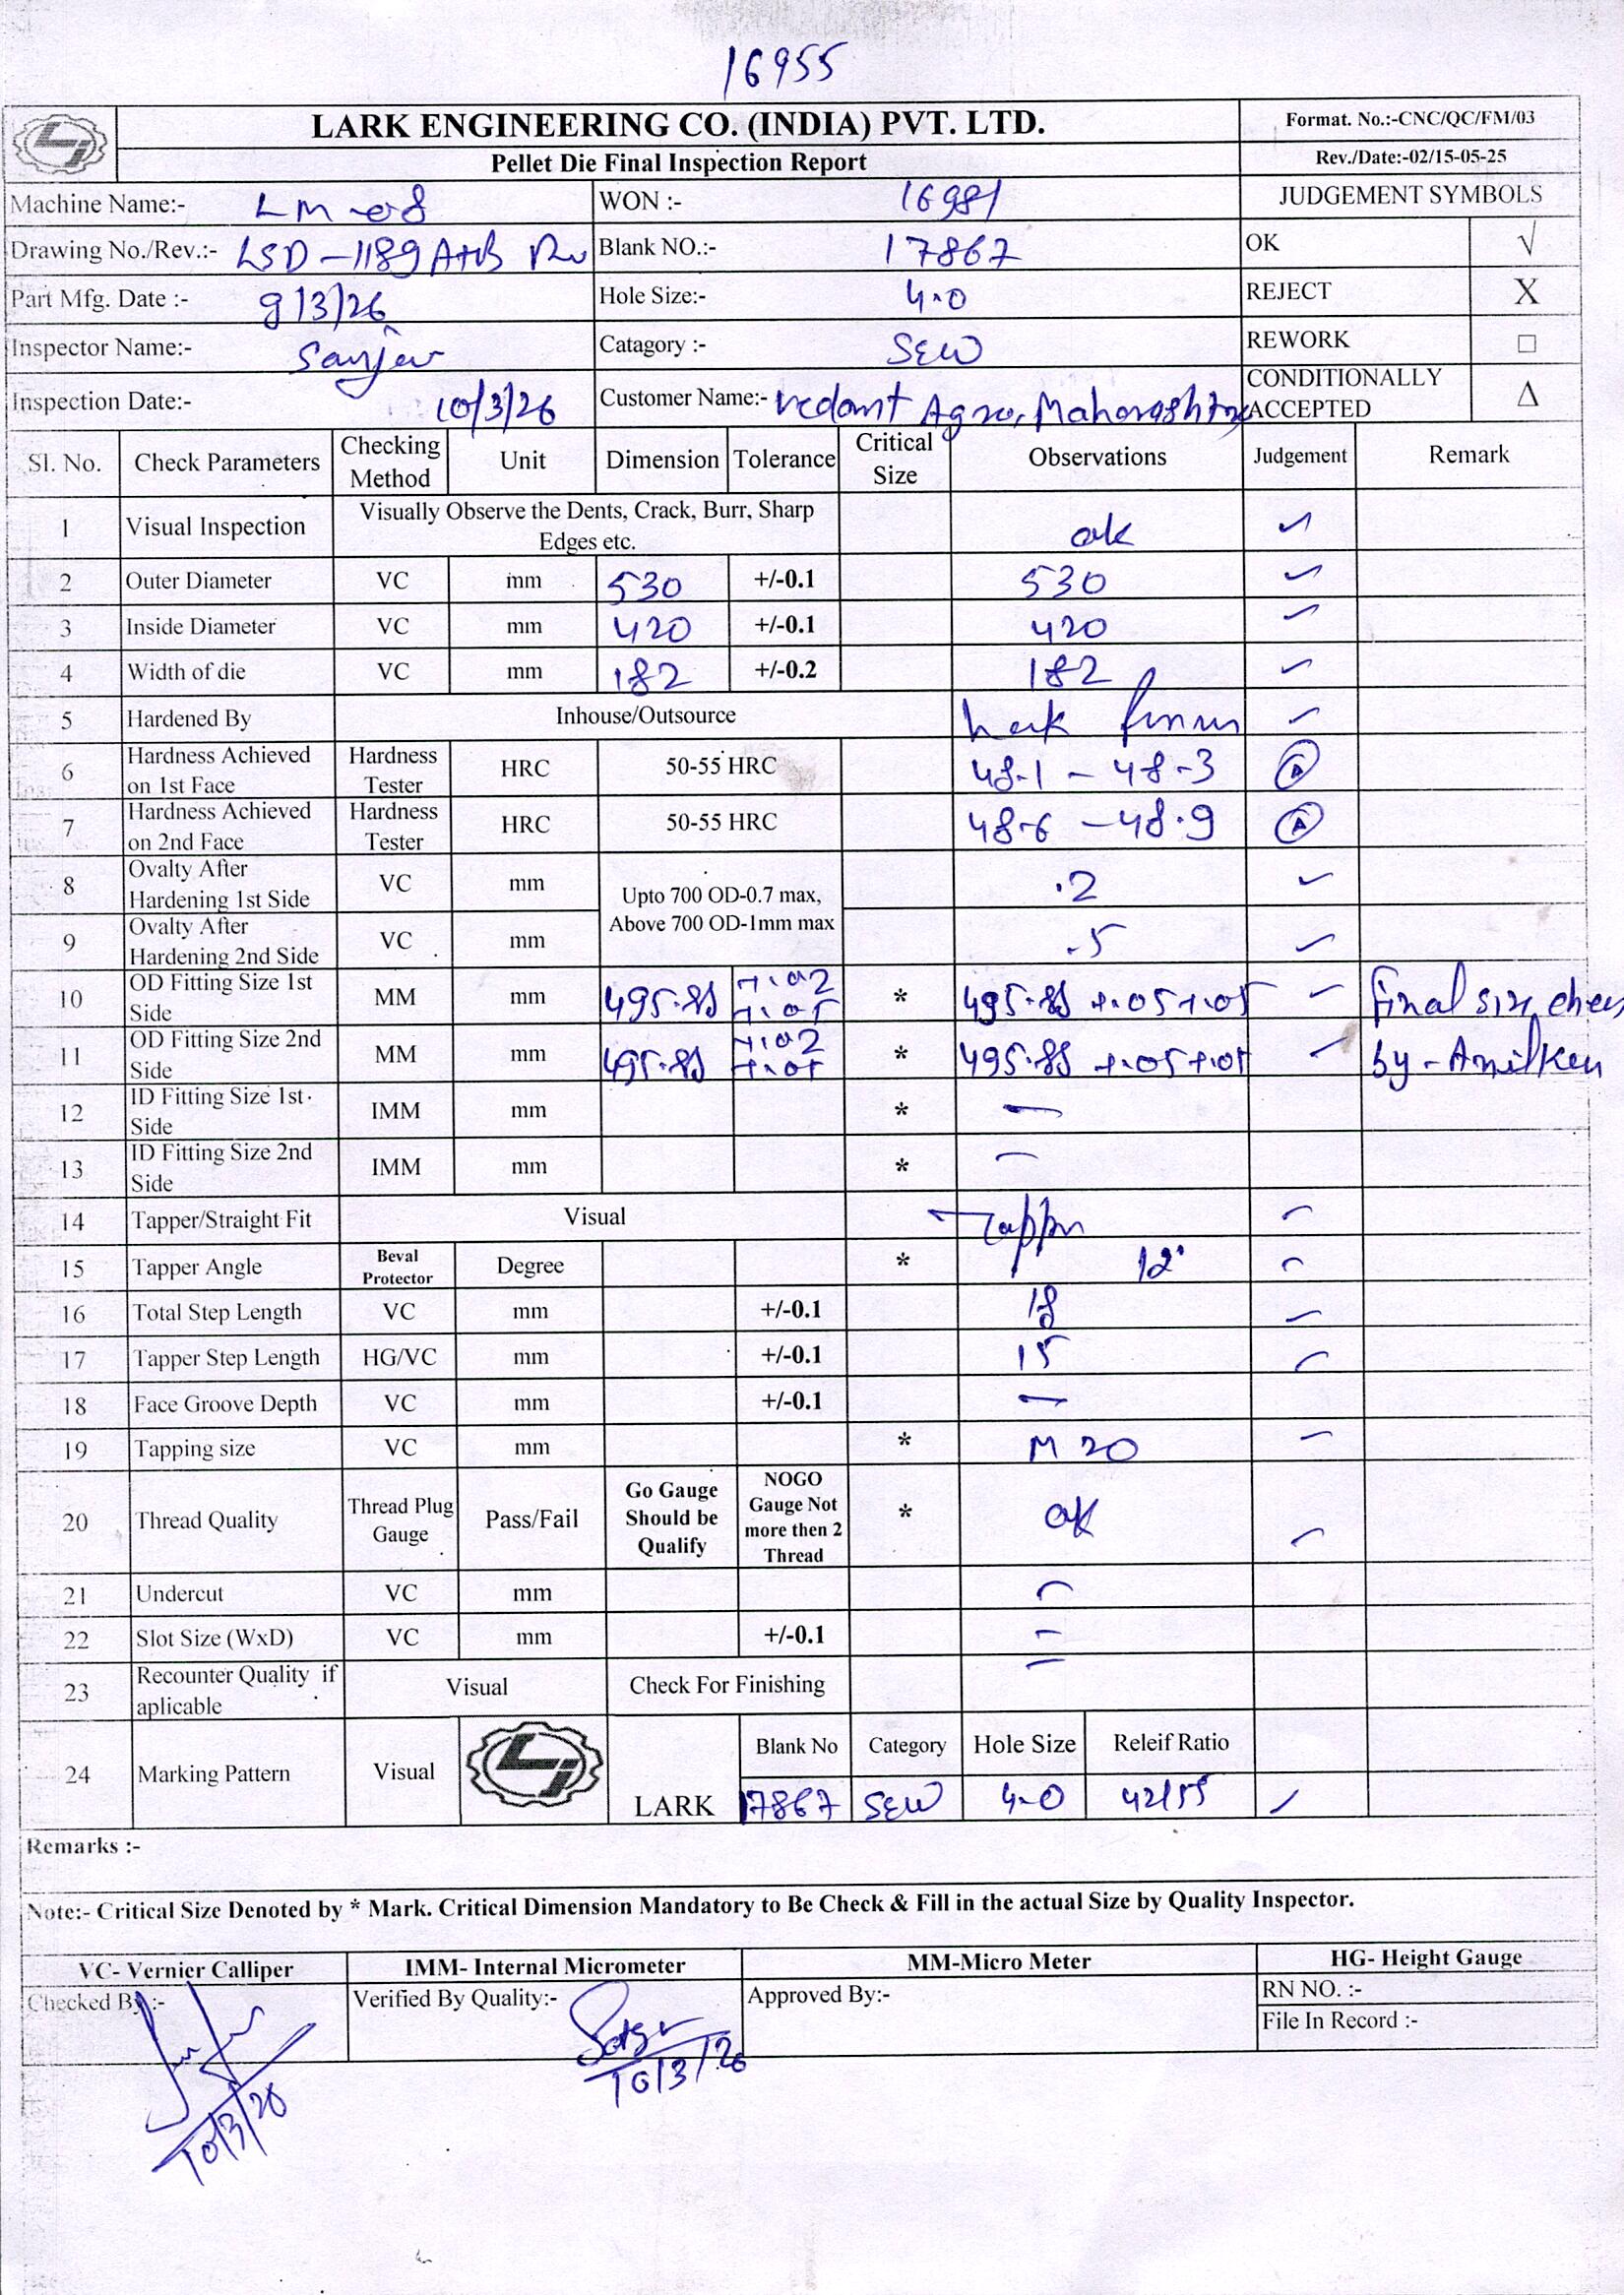 16955
LARK ENGINEERING CO. (INDIA) PVT. LTD.
Format. No.:-CNC/QC/FM/03
Pellet Die Final Inspection Report
Rev./Date:-02/15-05-25
Machine Name:- LM-08 WON :- 16981 JUDGEMENT SYMBOLS
Drawing No./Rev.:- LSD-1189 A+B Blank NO.:- 17867 OK √
Part Mfg. Date :- 9/3/26 Hole Size:- 4.0 REJECT X
Inspector Name:- Sanjev Catagory :- SEW REWORK □
Inspection Date:- 10/3/26 Customer Name:- Vedant Agro, Maharashtra CONDITIONALLY ACCEPTED Δ
Sl. No. Check Parameters Checking Method Unit Dimension Tolerance Critical Size Observations Judgement Remark
1 Visual Inspection Visually Observe the Dents, Crack, Burr, Sharp Edges etc. ok ✓
2 Outer Diameter VC mm 530 +/-0.1 530 ✓
3 Inside Diameter VC mm 420 +/-0.1 420 ✓
4 Width of die VC mm 182 +/-0.2 182 ✓
5 Hardened By Inhouse/Outsource ✓
6 Hardness Achieved on 1st Face Hardness Tester HRC 50-55 HRC 48.1 - 48.3
7 Hardness Achieved on 2nd Face Hardness Tester HRC 50-55 HRC 48.6 - 48.9
8 Ovalty After Hardening 1st Side VC mm Upto 700 OD-0.7 max, Above 700 OD-1mm max .2 ✓
9 Ovalty After Hardening 2nd Side VC mm .5 ✓
10 OD Fitting Size 1st Side MM mm 495.85 +.02 +.05 * 495.85 +.05+.05 ✓ Final size
11 OD Fitting Size 2nd Side MM mm 495.85 +.02 +.05 * 495.85 +.05+.05 ✓ by-Anil
12 ID Fitting Size 1st Side IMM mm * —
13 ID Fitting Size 2nd Side IMM mm * —
14 Tapper/Straight Fit Visual Tapper ✓
15 Tapper Angle Beval Protector Degree * 12° ✓
16 Total Step Length VC mm +/-0.1 18 ✓
17 Tapper Step Length HG/VC mm +/-0.1 15 ✓
18 Face Groove Depth VC mm +/-0.1 —
19 Tapping size VC mm * M 20 ✓
20 Thread Quality Thread Plug Gauge Pass/Fail Go Gauge Should be Qualify NOGO Gauge Not more then 2 Thread * ok ✓
21 Undercut VC mm —
22 Slot Size (WxD) VC mm +/-0.1 —
23 Recounter Quality if aplicable Visual Check For Finishing —
24 Marking Pattern Visual LARK Blank No Category Hole Size Releif Ratio
17867 SEW 4.0 42/55 ✓
Remarks :-
Note:- Critical Size Denoted by * Mark. Critical Dimension Mandatory to Be Check & Fill in the actual Size by Quality Inspector.
VC- Vernier Calliper IMM- Internal Micrometer MM-Micro Meter HG- Height Gauge
Checked By :- Verified By Quality:- Approved By:- RN NO. :-
File In Record :-
10/3/26 10/3/26